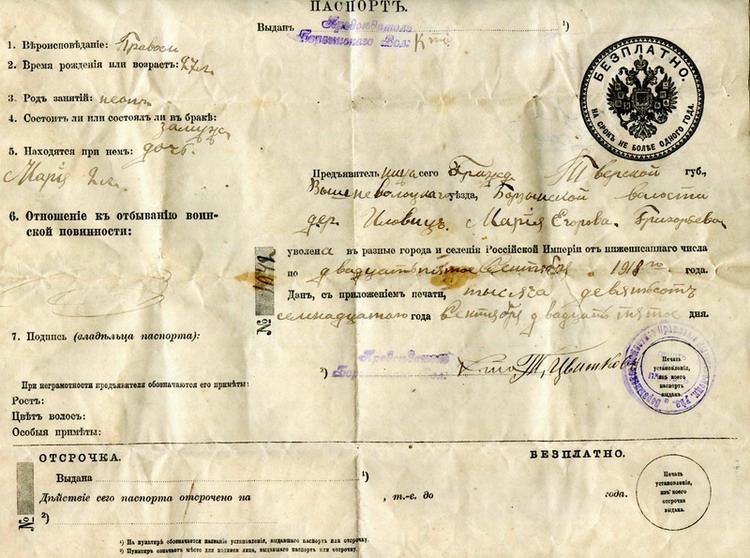 ПАСПОРТЪ.
Выданъ Председатель ¹)
Борзынскаго Вол.
БЕЗПЛАТНО.
НА СРОКЪ НЕ БОЛѢЕ ОДНОГО ГОДА.
1. Вѣроисповѣданіе: Правосл
2. Время рожденія или возрастъ: 27 л.
3. Родъ занятій:
4. Состоитъ ли или состоялъ ли въ бракѣ:
замужъ
5. Находятся при немъ: дочь
Марія 2 л.
6. Отношеніе къ отбыванію воин-
ской повинности:
7. Подпись (владѣльца паспорта):
При неграмотности предъявителя обозначаются его примѣты:
Ростъ:
Цвѣтъ волосъ:
Особыя примѣты:
Предъявитель ница сего Гражд Тверской губ.,
Вышневолоцкаго уѣзда, Борзынской волости
дер. Иловицъ Марія Егорова Григорьева
уволена въ разные города и селенія Россійской Имперіи отъ нижеписаннаго числа
по двадцать пятое Сентября 1918 го года.
Данъ, съ приложеніемъ печати, тысяча девятьсотъ
семнадцатаго года Сентября двадцать пятое дня.
№ 1042
²) Председатель
Борзынскаго
Цвѣтковъ
Печать
установленія,
изъ коего
паспортъ
выданъ.
ОТСРОЧКА.
БЕЗПЛАТНО.
Выдана ¹)
Дѣйствіе сего паспорта отсрочено на , т.-е. до года.
²)
№
Печать
установленія,
изъ коего
отсрочка
выдана.
¹) На пунктирѣ обозначается названіе установленія, выдавшаго паспортъ или отсрочку.
²) Пунктиръ означаетъ мѣсто для подписи лица, выдавшаго паспортъ или отсрочку.